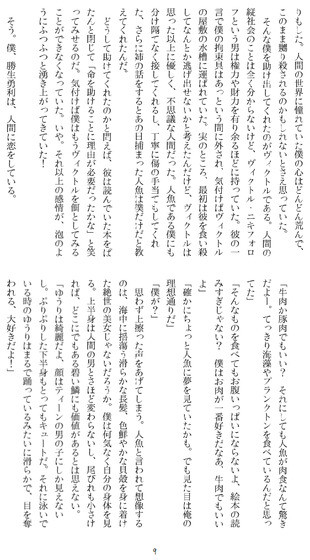 りもした。人間の世界に憧れていた僕の心はどんどん荒んで、
このまま嬲り殺されるのかもしれないとさえ思っていた。
　そんな僕を助け出してくれたのがヴィクトルである。人間の
縦社会のことは全く分からないけど、ヴィクトル・ニキフォロ
フという男は権力や財力を有り余るほどに持っていた。彼の一
言で僕の拘束具はあっという間に外され、気付けばヴィクトル
の屋敷の水槽に運ばれていた。実のところ、最初は彼を食い殺
してなんとか逃げ出せないかと考えたんだけど、ヴィクトルは
思った以上に優しく、不思議な人間だった。人魚である僕にも
分け隔てなく接してくれるし、丁寧に傷の手当てもしてくれ
た。さらに姉の話をするとあの日捕まった人魚は僕だけだと教
えてくれたんだ。
　どうして助けてくれたのかと問えば、彼は読んでいた本をぱ
たんと閉じて「命を助けることに理由が必要だったかな」と笑
ってみせるのだ。気付けば僕はもうヴィクトルを餌としてみる
ことができなくなっていた。いや、それ以上の感情が、泡のよ
うにふつふつと湧き上がってきていた！
　そう。僕、勝生勇利は、人間に恋をしている。
「牛肉か豚肉でもいい？　それにしても人魚が肉食なんて驚き
だよー。てっきり海藻やプランクトンを食べているんだと思っ
てた」
「そんなものを食べてもお腹いっぱいにならないよ、絵本の読
みすぎじゃない？　僕はお肉が一番好きだなあ、牛肉でもいい
よ」
「確かにちょっと人魚に夢を見ていたかも。でも見た目は俺の
理想通りだ」
「僕が？」
　思わず上擦った声をあげてしまう。人魚と言われて想像する
のは、海中に揺蕩う滑らかな長髪、色鮮やかな貝殻を身に着け
た絶世の美女じゃないだろうか。僕は何気なく自分の身体を見
る。上半身は人間の男とさほど変わらないし、尾びれも小さけ
れば、どこにでもある碧い鱗にも価値があるとは思えない。
「ゆうりは綺麗だよ、顔はティーンの男の子にしか見えない
し。ぷりぷりした下半身もとってもキュートだ。それに泳いで
いる時のゆうりはまるで踊っているみたいに滑らかで、目を奪
われる。大好きだよー」
9